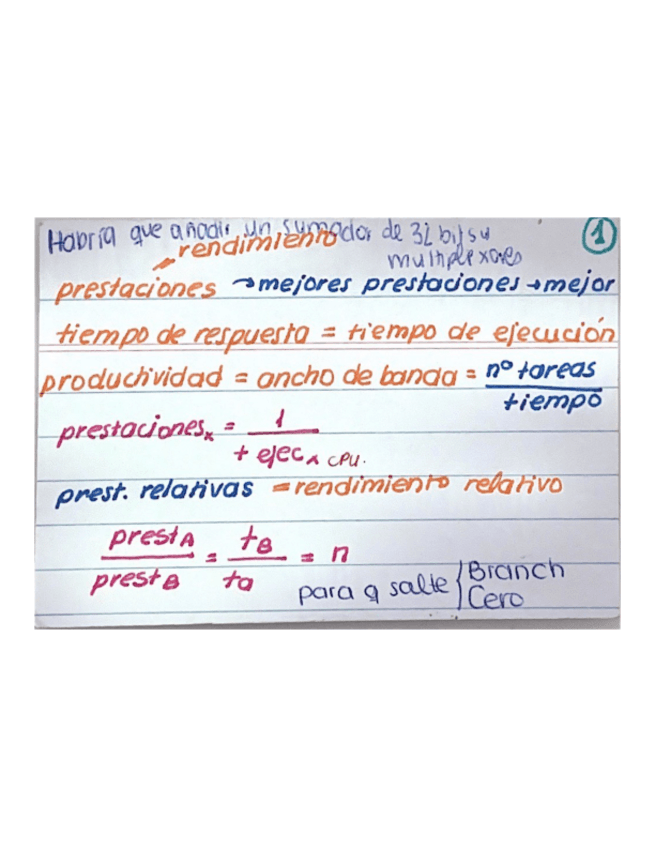 Habría que añadir un sumador de 32 bits y
multiplexores
1
rendimiento
prestaciones → mejores prestaciones → mejor
tiempo de respuesta = tiempo de ejecución
productividad = ancho de banda = nº tareas / tiempo
prestacionesₓ = 1 / t ejecₓ CPU.
prest. relativas = rendimiento relativo
prest A / prest B = tB / ta = n
para q salte { Branch
Cero